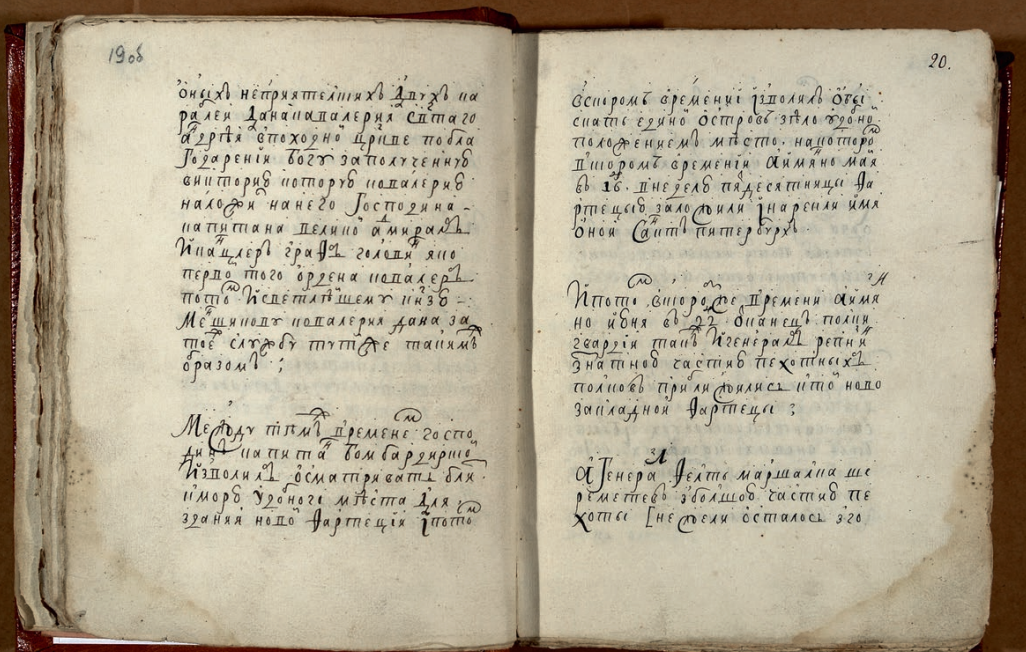 19 об
оных неприятелских двух ка
ралей дана кавалерия святаго
андрея в походной церкве по бла
годарении богу за полученную
викторию которую кавалерию
наложил на него господина
капитана великой адмирал
и канцлер граф головин яко
первой того ордена кавалер
потом и светлейшему князю
меншикову кавалерия дана за
тое службу тут же таким
образом ;
Между тем времене господин
капитан бомбардирской
изволил осматривать бли
к морю удобного места для
здания новой фартеции и потом
20.
в скором времении изволил оты
скать единой остров зело удобной
положением место. на котором
в скором времении а имянно мая
въ 16. в неделю пядесятницы фа
ртецыю заложили и нарекли имя
оной Санктъ питербурхъ
И потом в скором же времени а имян
но июня въ 22 околнец полки
гвардии так и генерал репнин
знатною частию пехотных
полков приближились к той ново
закладной фартецы ;
А Генерал фелтъ маршалка ше
реметевъ з болшою частию пе
хоты [нежели осталось з го